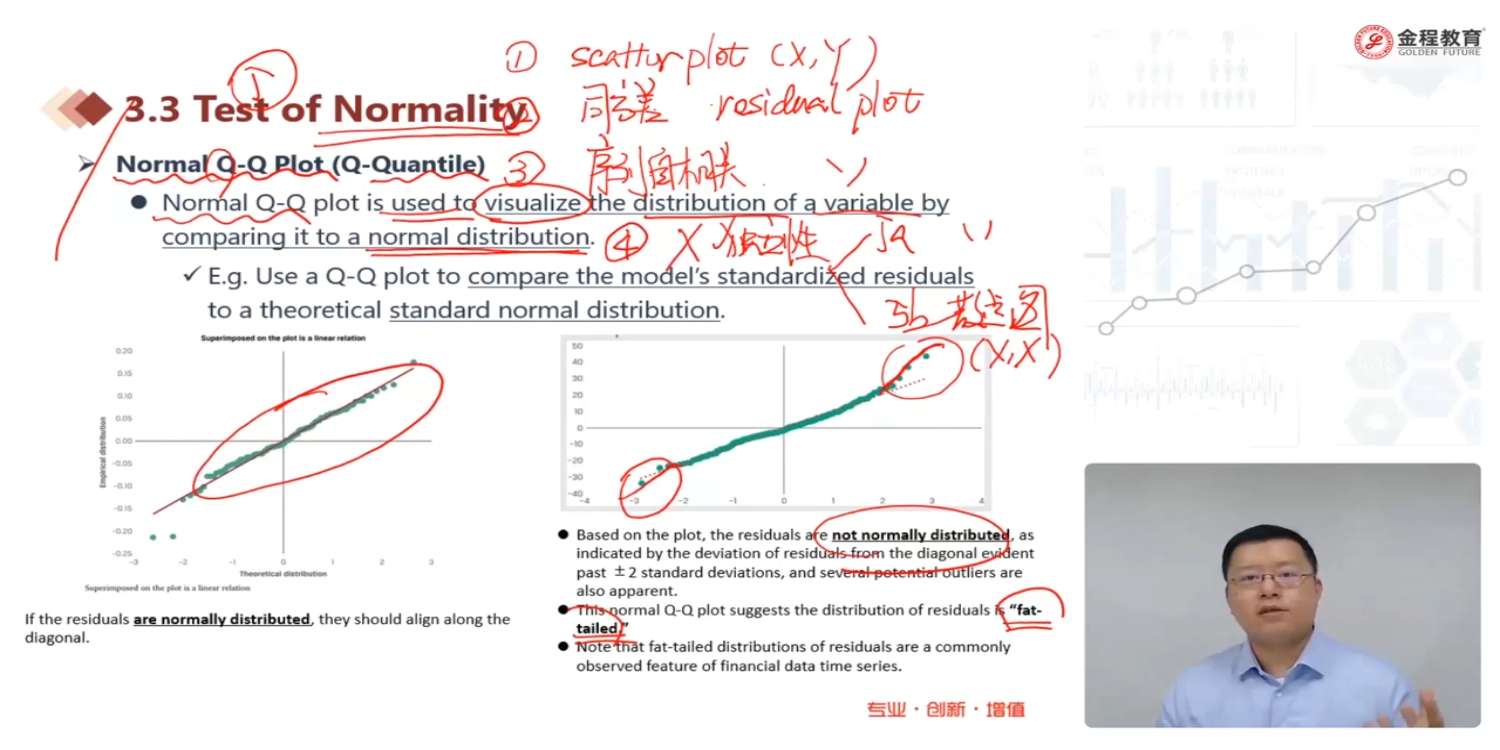 金程教育
GOLDEN FUTURE
① scatter plot (X, Y)
①
3.3 Test of Normality
② 同方差 residual plot
Normal Q-Q Plot (Q-Quantile)
③ 序列自相关
Normal Q-Q plot is used to visualize the distribution of a variable by
comparing it to a normal distribution.
④ X 独立性
5a
✓ E.g. Use a Q-Q plot to compare the model's standardized residuals
to a theoretical standard normal distribution.
5b 散点图
(X, X)
Superimposed on the plot is a linear relation
0.20
0.15
0.10
0.05
0.00
-0.05
-0.10
-0.15
-0.20
-0.25
Empirical distribution
-3 -2 -1 0 1 2 3
Theoretical distribution
Superimposed on the plot is a linear relation
If the residuals are normally distributed, they should align along the
diagonal.
50
40
30
20
10
0
-10
-20
-30
-40
-4 -3 -2 -1 0 1 2 3 4
Based on the plot, the residuals are not normally distributed, as
indicated by the deviation of residuals from the diagonal evident
past ±2 standard deviations, and several potential outliers are
also apparent.
This normal Q-Q plot suggests the distribution of residuals is “fat-
tailed.”
Note that fat-tailed distributions of residuals are a commonly
observed feature of financial data time series.
专业·创新·增值